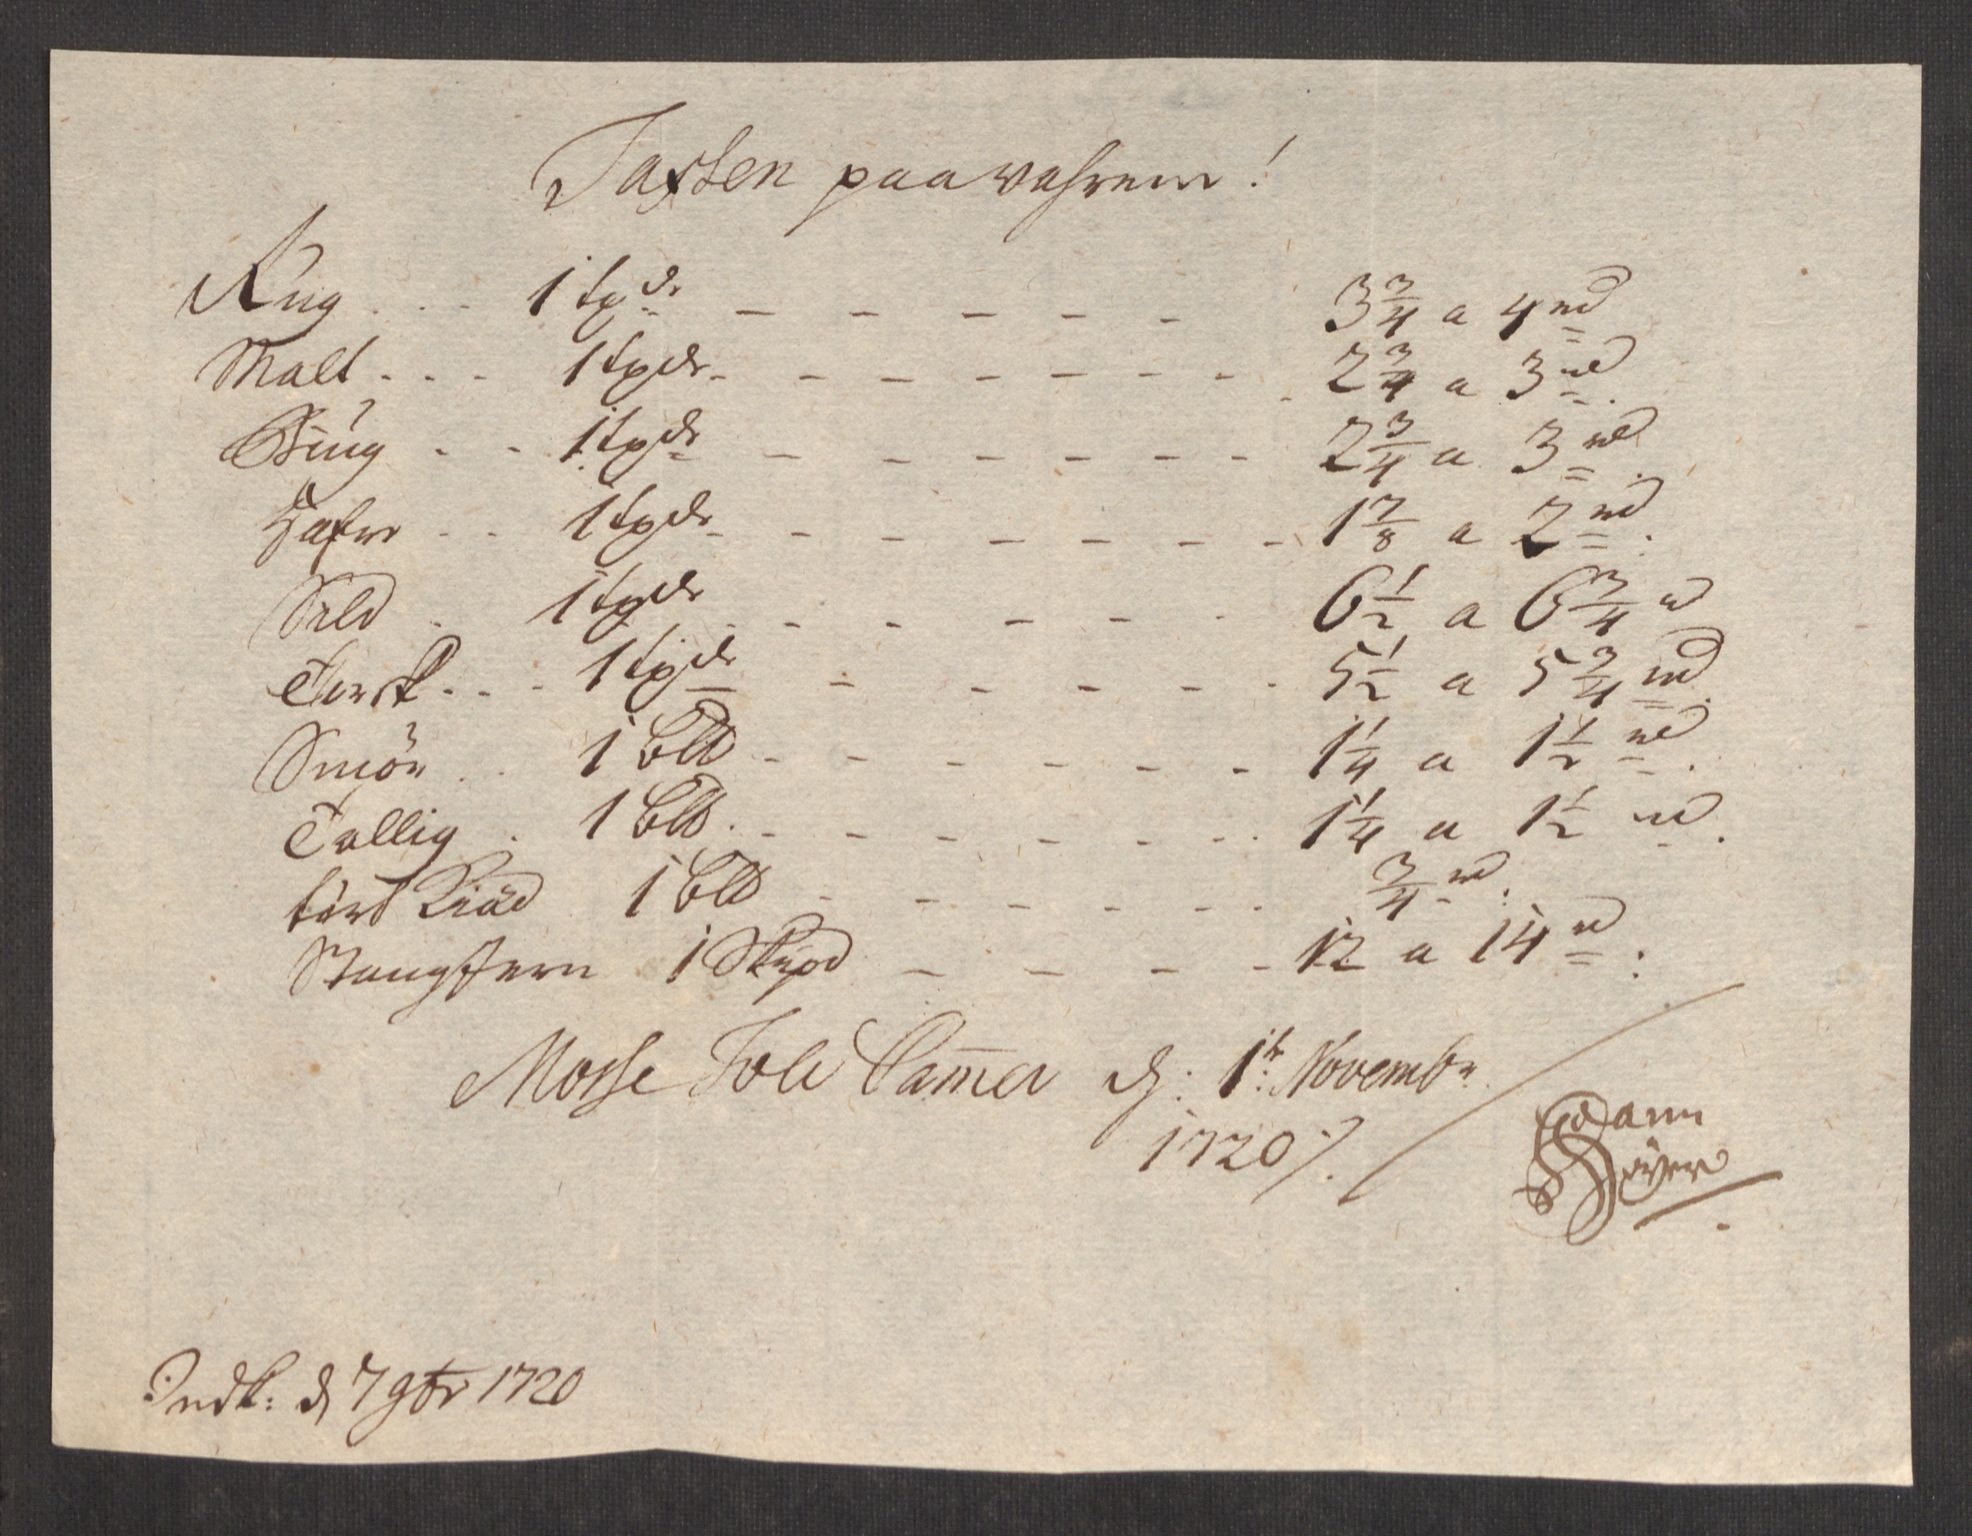 Taxten paa vahrene!
Rug . . . 1 tr̃de — — — — — — 3¾ a 4 rd
Malt . . . 1 tr̃de — — — — — — 2¾ a 3 rd.
Biug . . 1 tr̃de — — — — — — 2¾ a 3 rd.
Hafre . . 1 tr̃de — — — — — — 1⅞ a 2 rd:
Sild . 1 tr̃de — — — — — 6½ a 6¾ rd
Torsk . . . 1 tr̃de — — — — — 5½ a 5¾ rd.
Smör . . 1 Bltt — — — — — — 1¼ a 1½ rd.
Tallig . 1 Bltt — — — — — — 1¼ a 1½ rd.
tört Kiöd 1 Bltt — — — — — ¾ rd.
Stangjern 1 Skpd — — — — 12 a 14 rd:
Mosse Told Cam̃er d: 1te Novembr
1720 /.
Höyer
Indk: d 7 9br 1720